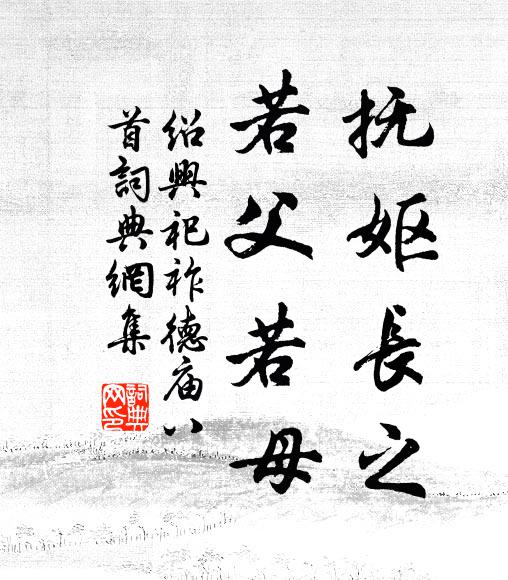 抚妪長之
若父若母
绍興祀祚德庙八
首詞典網集
詞典
网印